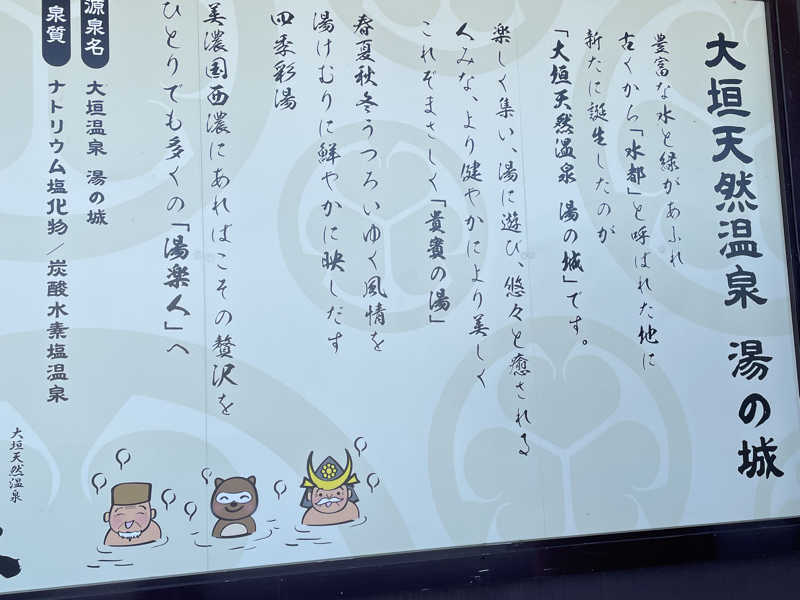 大垣天然温泉 湯の城
豊富な水と緑があふれ
古くから「水都」と呼ばれた地に
新たに誕生したのが
「大垣天然温泉 湯の城」です。
楽しく集い、湯に遊び、悠々と癒される
人みな、より健やかにより美しく
これぞまさしく「貴賓の湯」
春夏秋冬うつろいゆく風情を
湯けむりに鮮やかに映しだす
四季彩湯
美濃国西濃にあればこその贅沢を
ひとりでも多くの「湯楽人」へ
源泉名 大垣温泉 湯の城
泉質 ナトリウム塩化物／炭酸水素塩温泉
大垣天然温泉